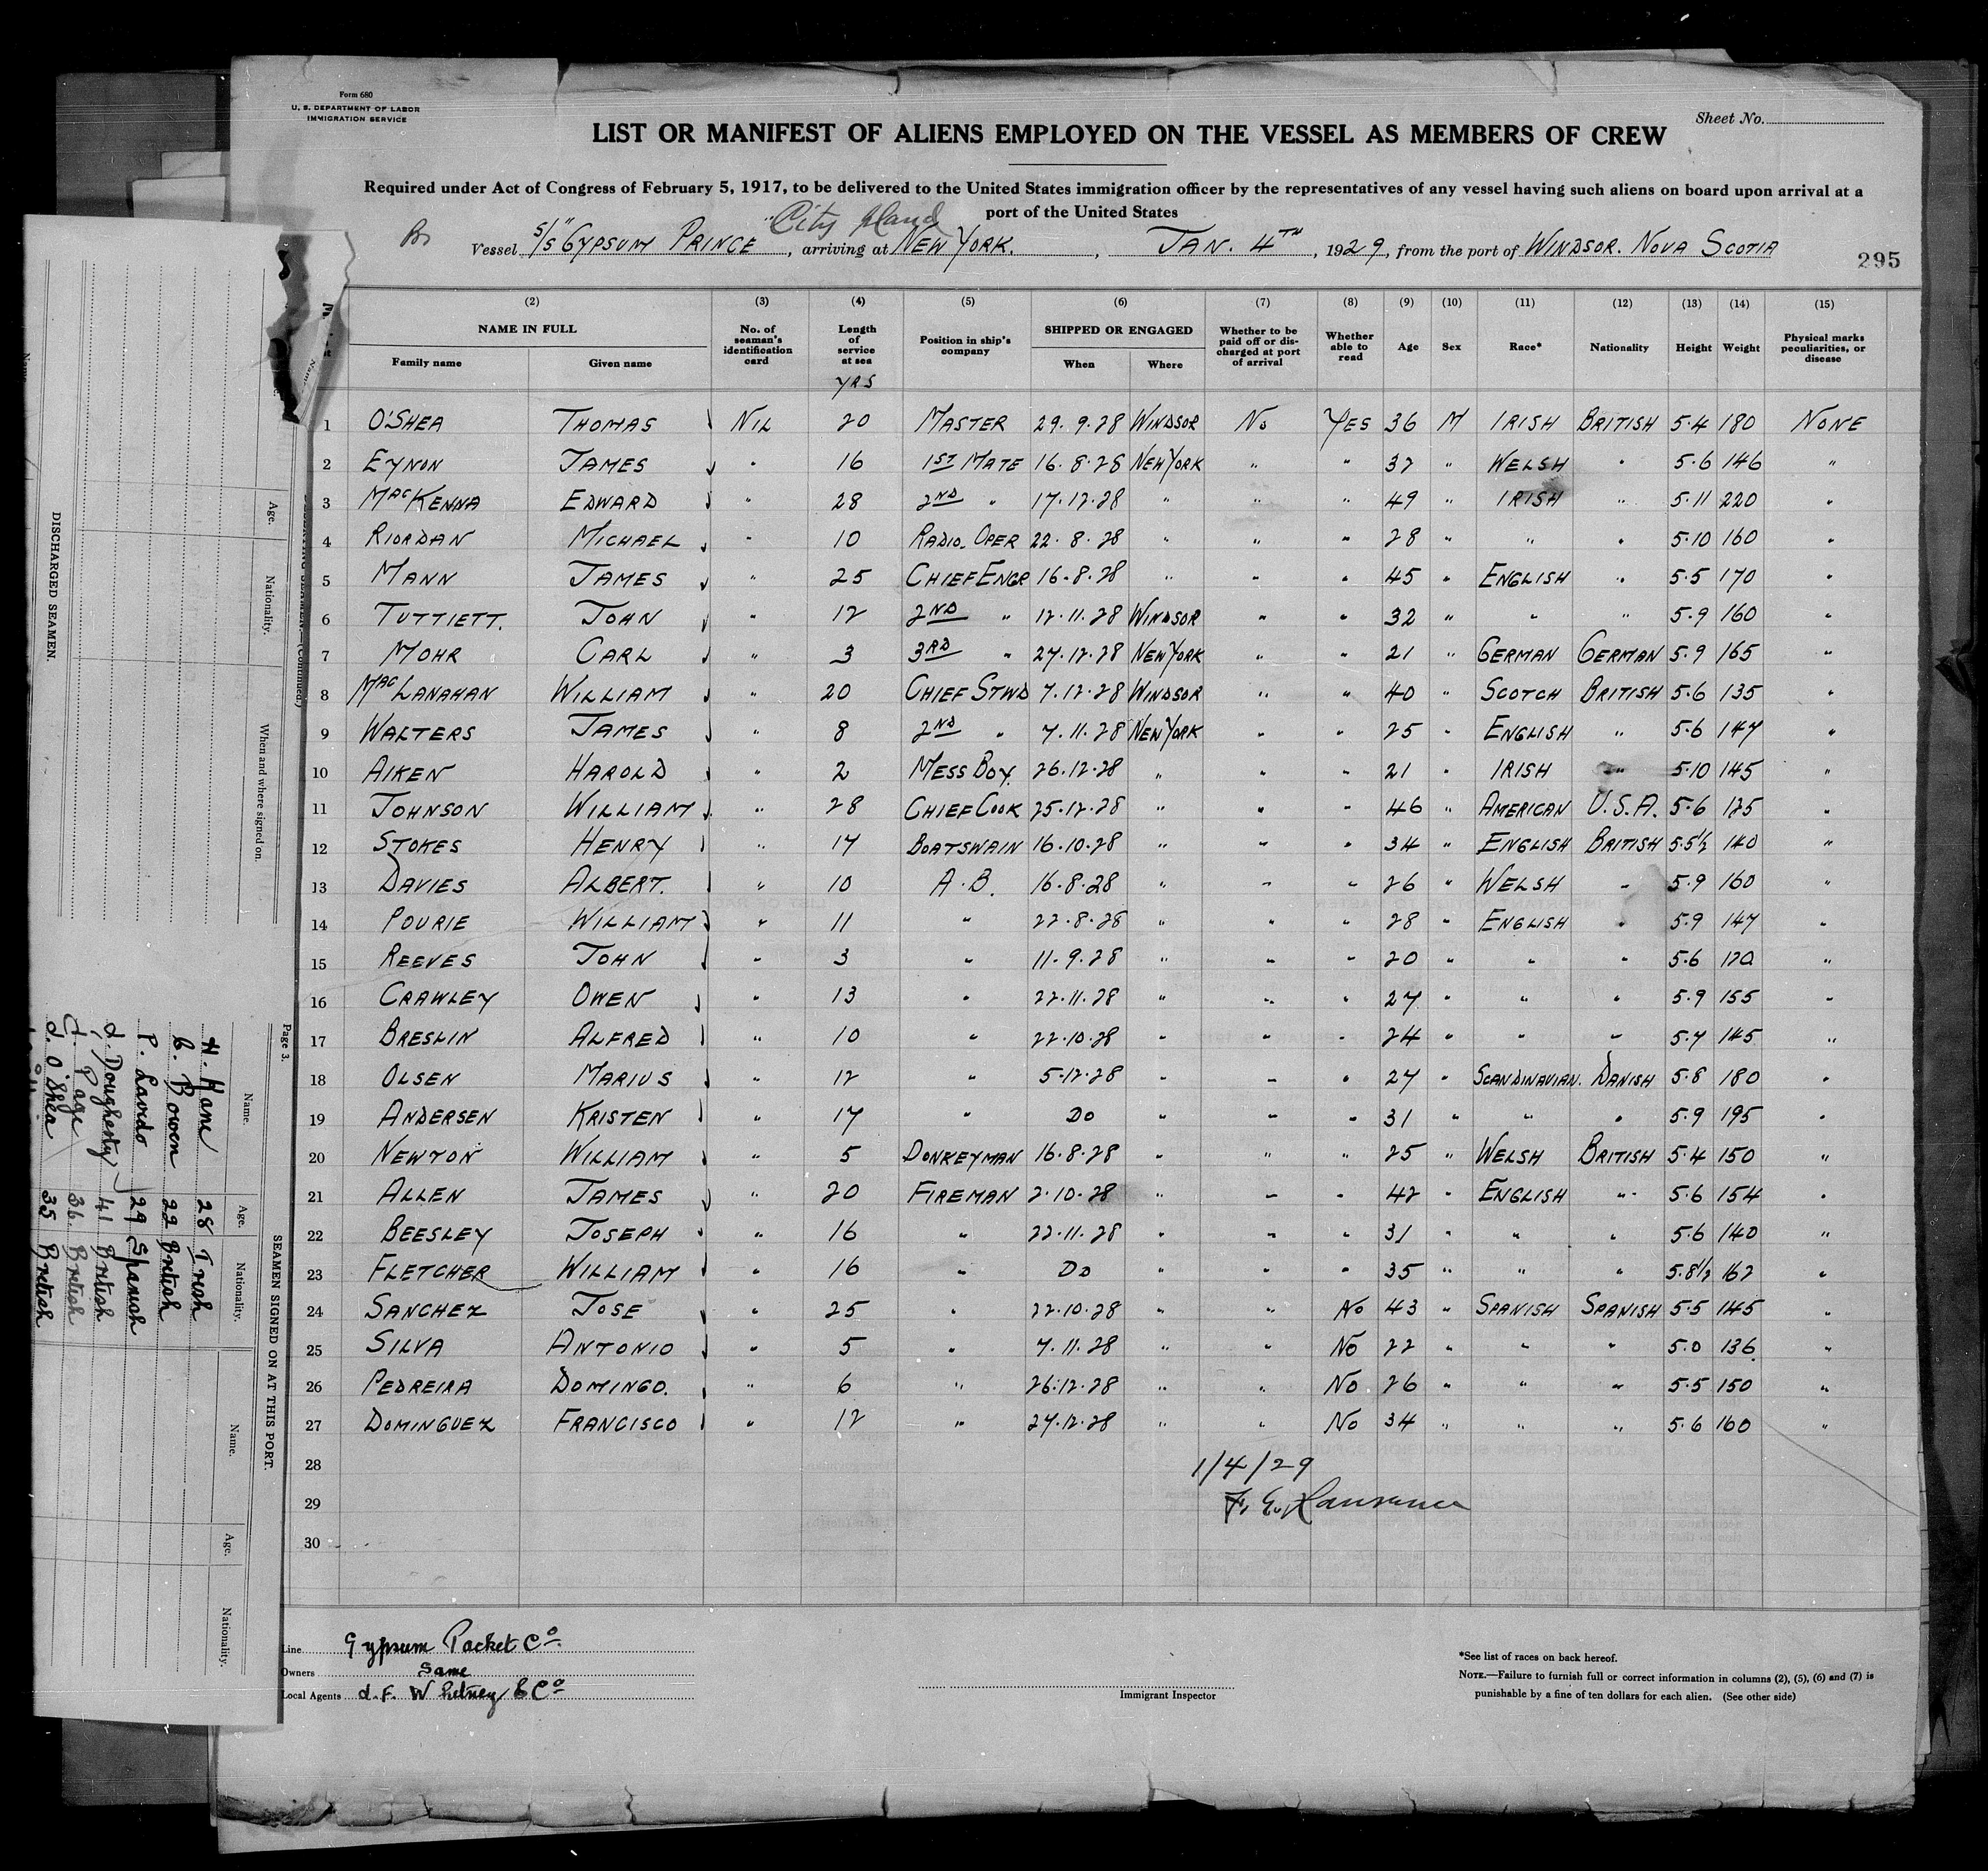 Form 680
U. S. DEPARTMENT OF LABOR
IMMIGRATION SERVICE
Sheet No.
LIST OR MANIFEST OF ALIENS EMPLOYED ON THE VESSEL AS MEMBERS OF CREW
Required under Act of Congress of February 5, 1917, to be delivered to the United States immigration officer by the representatives of any vessel having such aliens on board upon arrival at a
port of the United States
City Island
Vessel S/S "GYPSUM PRINCE", arriving at NEW YORK., JAN. 4TH, 1929, from the port of WINDSOR. NOVA SCOTIA
295
(2) (3) (4) (5) (6) (7) (8) (9) (10) (11) (12) (13) (14) (15)
NAME IN FULL No. of seaman's identification card Length of service at sea Position in ship's company SHIPPED OR ENGAGED Whether to be paid off or discharged at port of arrival Whether able to read Age Sex Race* Nationality Height Weight Physical marks peculiarities, or disease
Family name Given name When Where
YRS
1 O'SHEA THOMAS NIL 20 MASTER 29.9.28 WINDSOR No YES 36 M IRISH BRITISH 5.4 180 NONE
2 EYNON JAMES " 16 1ST MATE 16.8.28 NEW YORK " " 32 " WELSH " 5.6 146 "
3 MACKENNA EDWARD " 28 2ND " 17.12.28 " " " 49 " IRISH " 5.11 220 "
4 RIORDAN MICHAEL " 10 RADIO. OPER 22.8.28 " " " 28 " " " 5.10 160 "
5 MANN JAMES " 25 CHIEF ENGR 16.8.28 " " " 45 " ENGLISH " 5.5 170 "
6 TUTTIETT. JOHN " 12 2ND " 12.11.28 WINDSOR " " 32 " " " 5.9 160 "
7 MOHR CARL " 3 3RD " 27.12.28 NEW YORK " " 21 " GERMAN GERMAN 5.9 165 "
8 MACLANAHAN WILLIAM " 20 CHIEF STWD 7.12.28 WINDSOR " " 40 " SCOTCH BRITISH 5.6 135 "
9 WALTERS JAMES " 8 2ND " 7.11.28 NEW YORK " " 25 " ENGLISH " 5.6 147 "
10 AIKEN HAROLD " 2 MESS BOY. 26.12.28 " " " 21 " IRISH " 5.10 145 "
11 JOHNSON WILLIAM " 28 CHIEF COOK 25.12.28 " " " 46 " AMERICAN U.S.A. 5.6 125 "
12 STOKES HENRY " 17 BOATSWAIN 16.10.28 " " " 34 " ENGLISH BRITISH 5.5½ 140 "
13 DAVIES ALBERT. " 10 A.B. 16.8.28 " " " 26 " WELSH " 5.9 160 "
14 POURIE WILLIAM " 11 " 22.8.28 " " " 28 " ENGLISH " 5.9 147 "
15 REEVES JOHN " 3 " 11.9.28 " " " 20 " " " 5.6 120 "
16 CRAWLEY OWEN " 13 " 22.11.28 " " " 27 " " " 5.9 155 "
17 BRESLIN ALFRED " 10 " 22.10.28 " " " 24 " " " 5.7 145 "
18 OLSEN MARIUS " 12 " 5.12.28 " " " 27 " SCANDINAVIAN. DANISH 5.8 180 "
19 ANDERSEN KRISTEN " 17 " DO " " " 31 " " " 5.9 195 "
20 NEWTON WILLIAM " 5 DONKEYMAN 16.8.28 " " " 25 " WELSH BRITISH 5.4 150 "
21 ALLEN JAMES " 20 FIREMAN 2.10.28 " " " 42 " ENGLISH " 5.6 154 "
22 BEESLEY JOSEPH " 16 " 22.11.28 " " " 31 " " " 5.6 140 "
23 FLETCHER WILLIAM " 16 " DO " " " 35 " " " 5.8½ 162 "
24 SANCHEZ JOSE " 25 " 22.10.28 " " No 43 " SPANISH SPANISH 5.5 145 "
25 SILVA ANTONIO " 5 " 7.11.28 " " No 22 " " " 5.0 136 "
26 PEDREIRA DOMINGO. " 6 " 26.12.28 " " No 26 " " " 5.5 150 "
27 DOMINGUEZ FRANCISCO " 12 " 27.12.28 " " No 34 " " " 5.6 160 "
28
1/4/29
29
F. E. Lawrence
30
Line Gypsum Packet Co.
Owners Same
Local Agents J. F. Whitney & Co
Immigrant Inspector
*See list of races on back hereof.
NOTE.—Failure to furnish full or correct information in columns (2), (5), (6) and (7) is
punishable by a fine of ten dollars for each alien. (See other side)
DISCHARGED SEAMEN.
Name.
Age.
Nationality.
When and where signed on.
(Continued.)
Page 3.
SEAMEN SIGNED ON AT THIS PORT.
Name. Age. Nationality. Name. Age. Nationality.
H. Hane 28 Irish
B. Bowen 22 British
P. Lavido 29 Spanish
J. Dougherty 41 British
J. Page 36. British
J. O'Shea 35 British